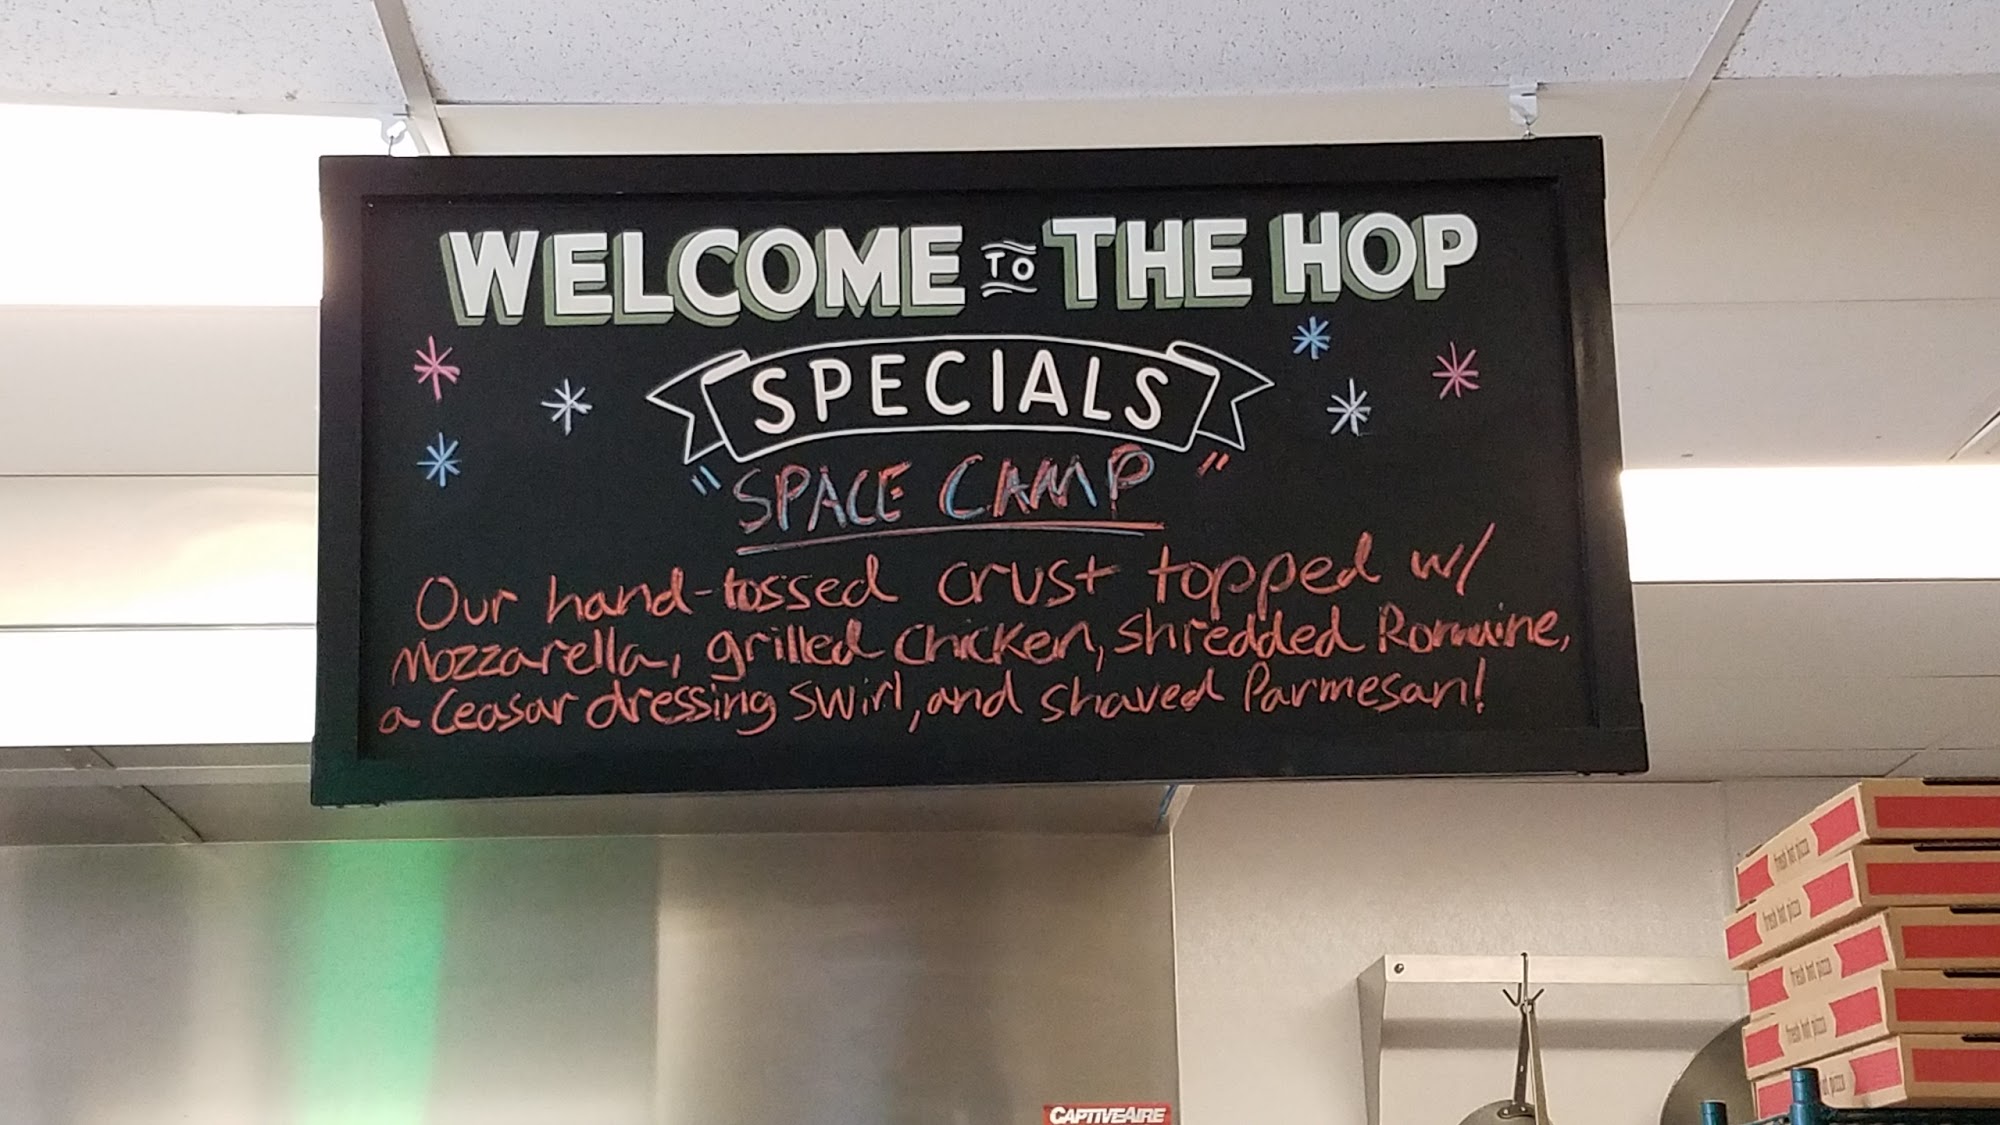 WELCOME TO THE HOP
SPECIALS
"SPACE CAMP"
Our hand-tossed crust topped w/
Mozzarella, grilled chicken, shredded Romaine,
a Ceasar dressing swirl, and shaved Parmesan!
fresh hot pizza
fresh hot pizza
fresh hot pizza
fresh hot pizza
pizza
CAPTIVEAIRE